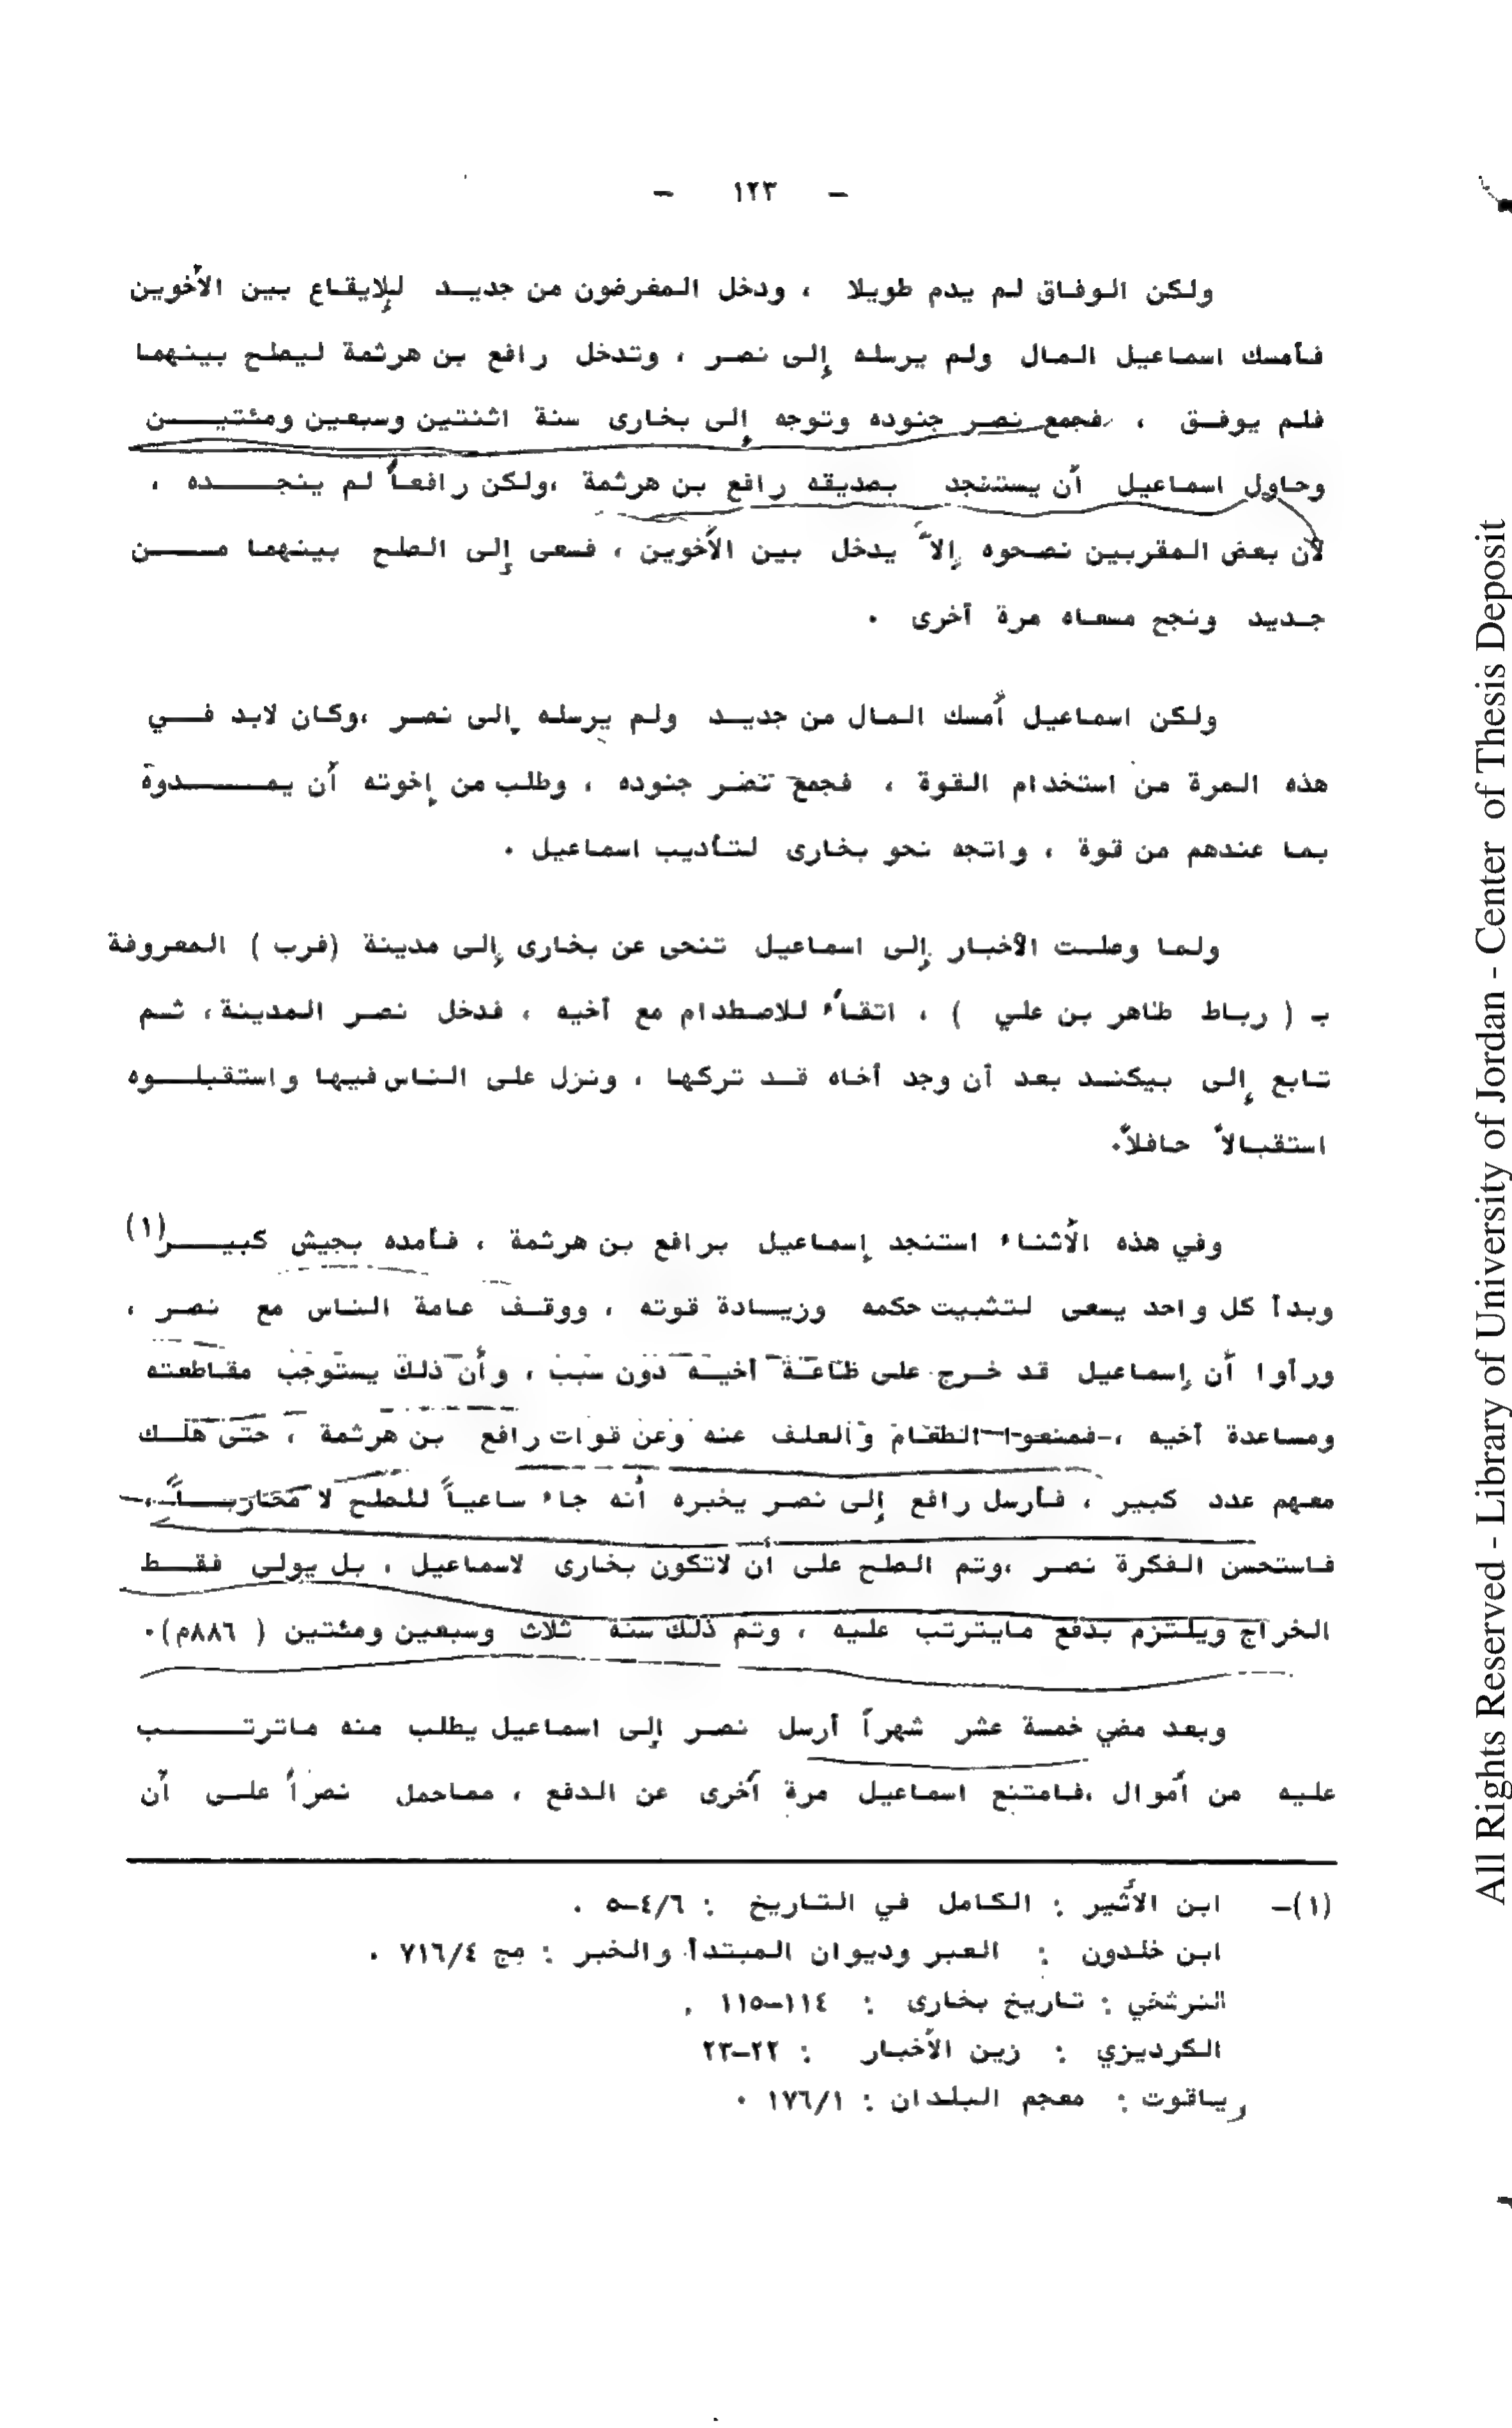 - ١٢٣ -
ولكن الوفاق لم يدم طويلا ، ودخل المغرضون من جديد للإيقاع بين الأخوين
فأمسك اسماعيل المال ولم يرسله إلى نصر ، وتدخل رافع بن هرثمة ليصلح بينهما
فلم يوفق ، فجمع نصر جنوده وتوجه إلى بخارى سنة اثنتين وسبعين ومئتين
وحاول اسماعيل أن يستنجد بصديقه رافع بن هرثمة ،ولكن رافعاً لم ينجده ،
لأن بعض المقربين نصحوه إلاّ يدخل بين الأخوين ، فسعى إلى الصلح بينهما من
جديد ونجح مسعاه مرة أخرى .
ولكن اسماعيل أمسك المال من جديد ولم يرسله إلى نصر ،وكان لابد في
هذه المرة من استخدام القوة ، فجمع نصر جنوده ، وطلب من إخوته أن يمدوه
بما عندهم من قوة ، واتجه نحو بخارى لتأديب اسماعيل .
ولما وصلت الأخبار إلى اسماعيل تنحى عن بخارى إلى مدينة (فرب ) المعروفة
بـ ( رباط طاهر بن علي ) ، اتقاءً للاصطدام مع أخيه ، فدخل نصر المدينة، ثم
تابع إلى بيكند بعد أن وجد أخاه قد تركها ، ونزل على الناس فيها واستقبلوه
استقبالاً حافلاً.
وفي هذه الأثناء استنجد إسماعيل برافع بن هرثمة ، فأمده بجيش كبير(١)
وبدأ كل واحد يسعى لتثبيت حكمه وزيادة قوته ، ووقف عامة الناس مع نصر ،
ورأوا أن إسماعيل قد خرج على طاعة أخيه دون سبب ، وأن ذلك يستوجب مقاطعته
ومساعدة أخيه ، فمنعوا الطعام والعلف عنه وعن قوات رافع بن هرثمة ، حتى هلك
معهم عدد كبير ، فأرسل رافع إلى نصر يخبره أنه جاء ساعياً للصلح لا محارباً ،
فاستحسن الفكرة نصر ،وتم الصلح على أن لاتكون بخارى لاسماعيل ، بل يولى فقط
الخراج ويلتزم بدفع مايترتب عليه ، وتم ذلك سنة ثلاث وسبعين ومئتين ( ٨٨٦م).
وبعد مضي خمسة عشر شهراً أرسل نصر إلى اسماعيل يطلب منه ماترتب
عليه من أموال ،فامتنع اسماعيل مرة أخرى عن الدفع ، مماحمل نصراً على أن
(١)- ابن الأثير : الكامل في التاريخ : ٤/٦-٥ .
ابن خلدون : العبر وديوان المبتدأ والخبر : مج ٧١٦/٤ .
النرشخي : تاريخ بخارى : ١١٤-١١٥ .
الكرديزي : زين الأخبار : ٢٢-٢٣
وياقوت : معجم البلدان : ١٧٦/١ .
All Rights Reserved - Library of University of Jordan - Center of Thesis Deposit